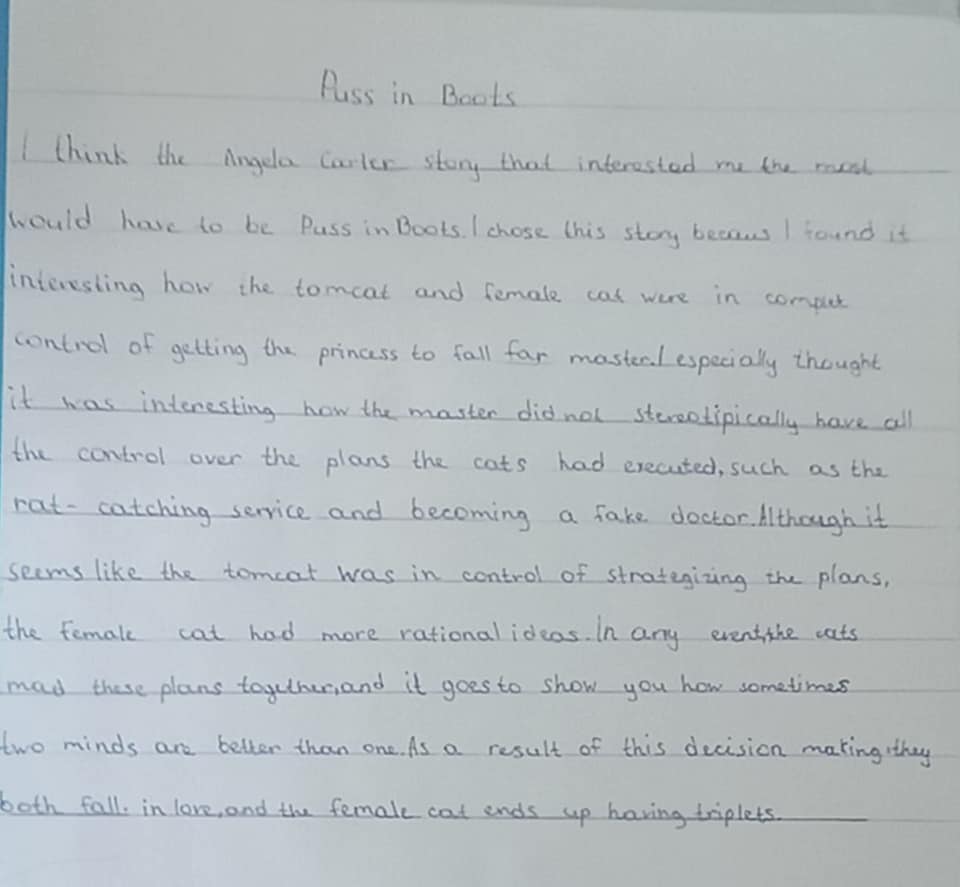 Puss in Boots
I think the Angela Carter story that interested me the most
would have to be Puss in Boots. I chose this story becaus I found it
interesting how the tomcat and female cat were in complet
control of getting the princess to fall for master. I especially thought
it was interesting how the master did not stereotipically have all
the control over the plans the cats had executed, such as the
rat-catching service and becoming a fake doctor. Although it
seems like the tomcat was in control of strategizing the plans,
the female cat had more rational ideas. In any event, the cats
mad these plans together, and it goes to show you how sometimes
two minds are better than one. As a result of this decision making, they
both fall. in love, and the female cat ends up having triplets.